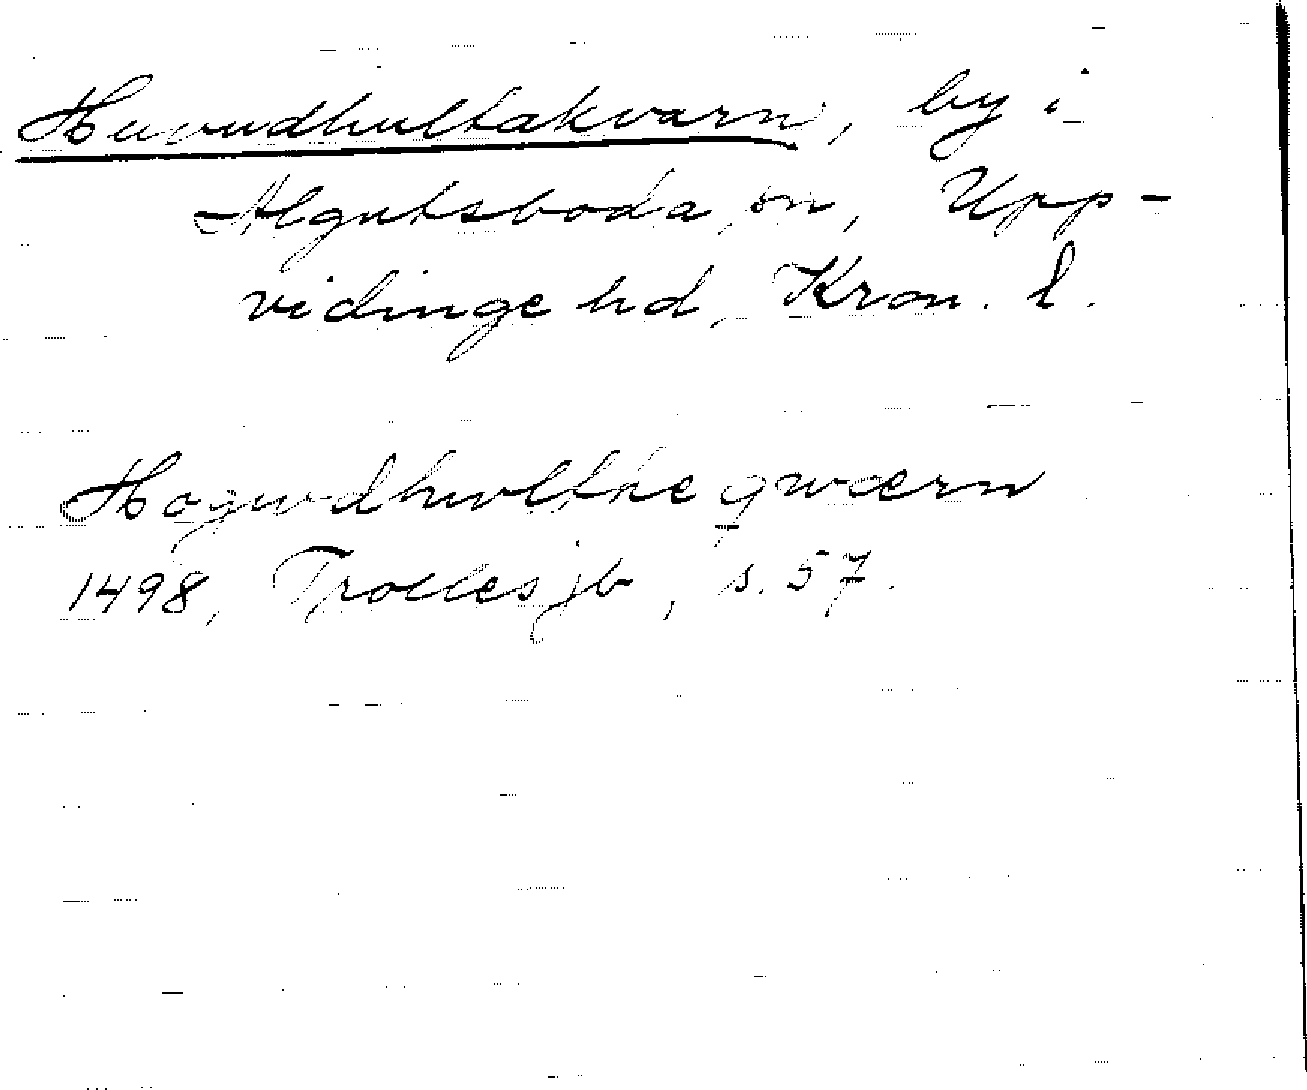 Huvudhultakvarn, by i
Algutsboda sn, Upp-
vidinge hd, Kron. l.
Hogwdhwlthe qwærn
1498, Trolles jb, s. 57.